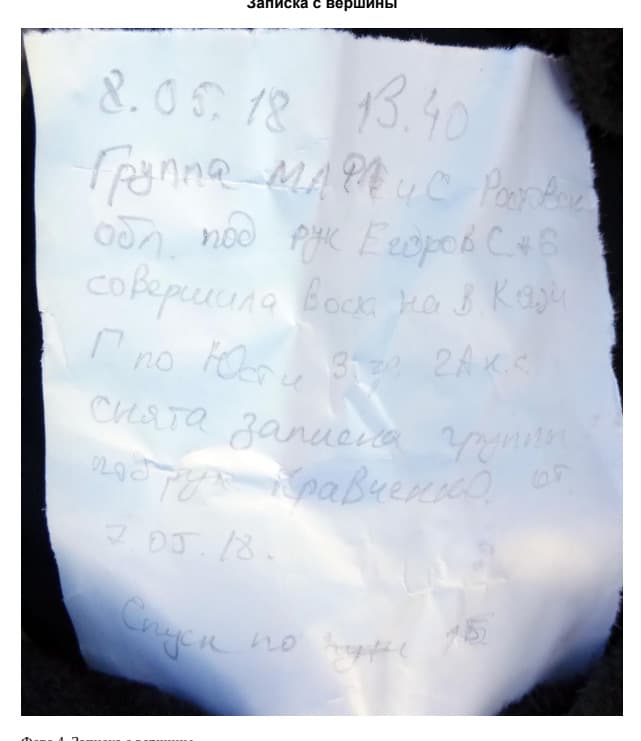 Записка с вершины
8.05.18 13.40
Группа МАФ и С Ростовск
обл. под рук Егоров С +6
совершила восх на в. Кязи
П по Ю 3. гр. 2А к.с.
снята записка группы
под рук Кравченко О. от
7.05.18.
Спуск по пути 1Б
Фото 4. Записка с вершины